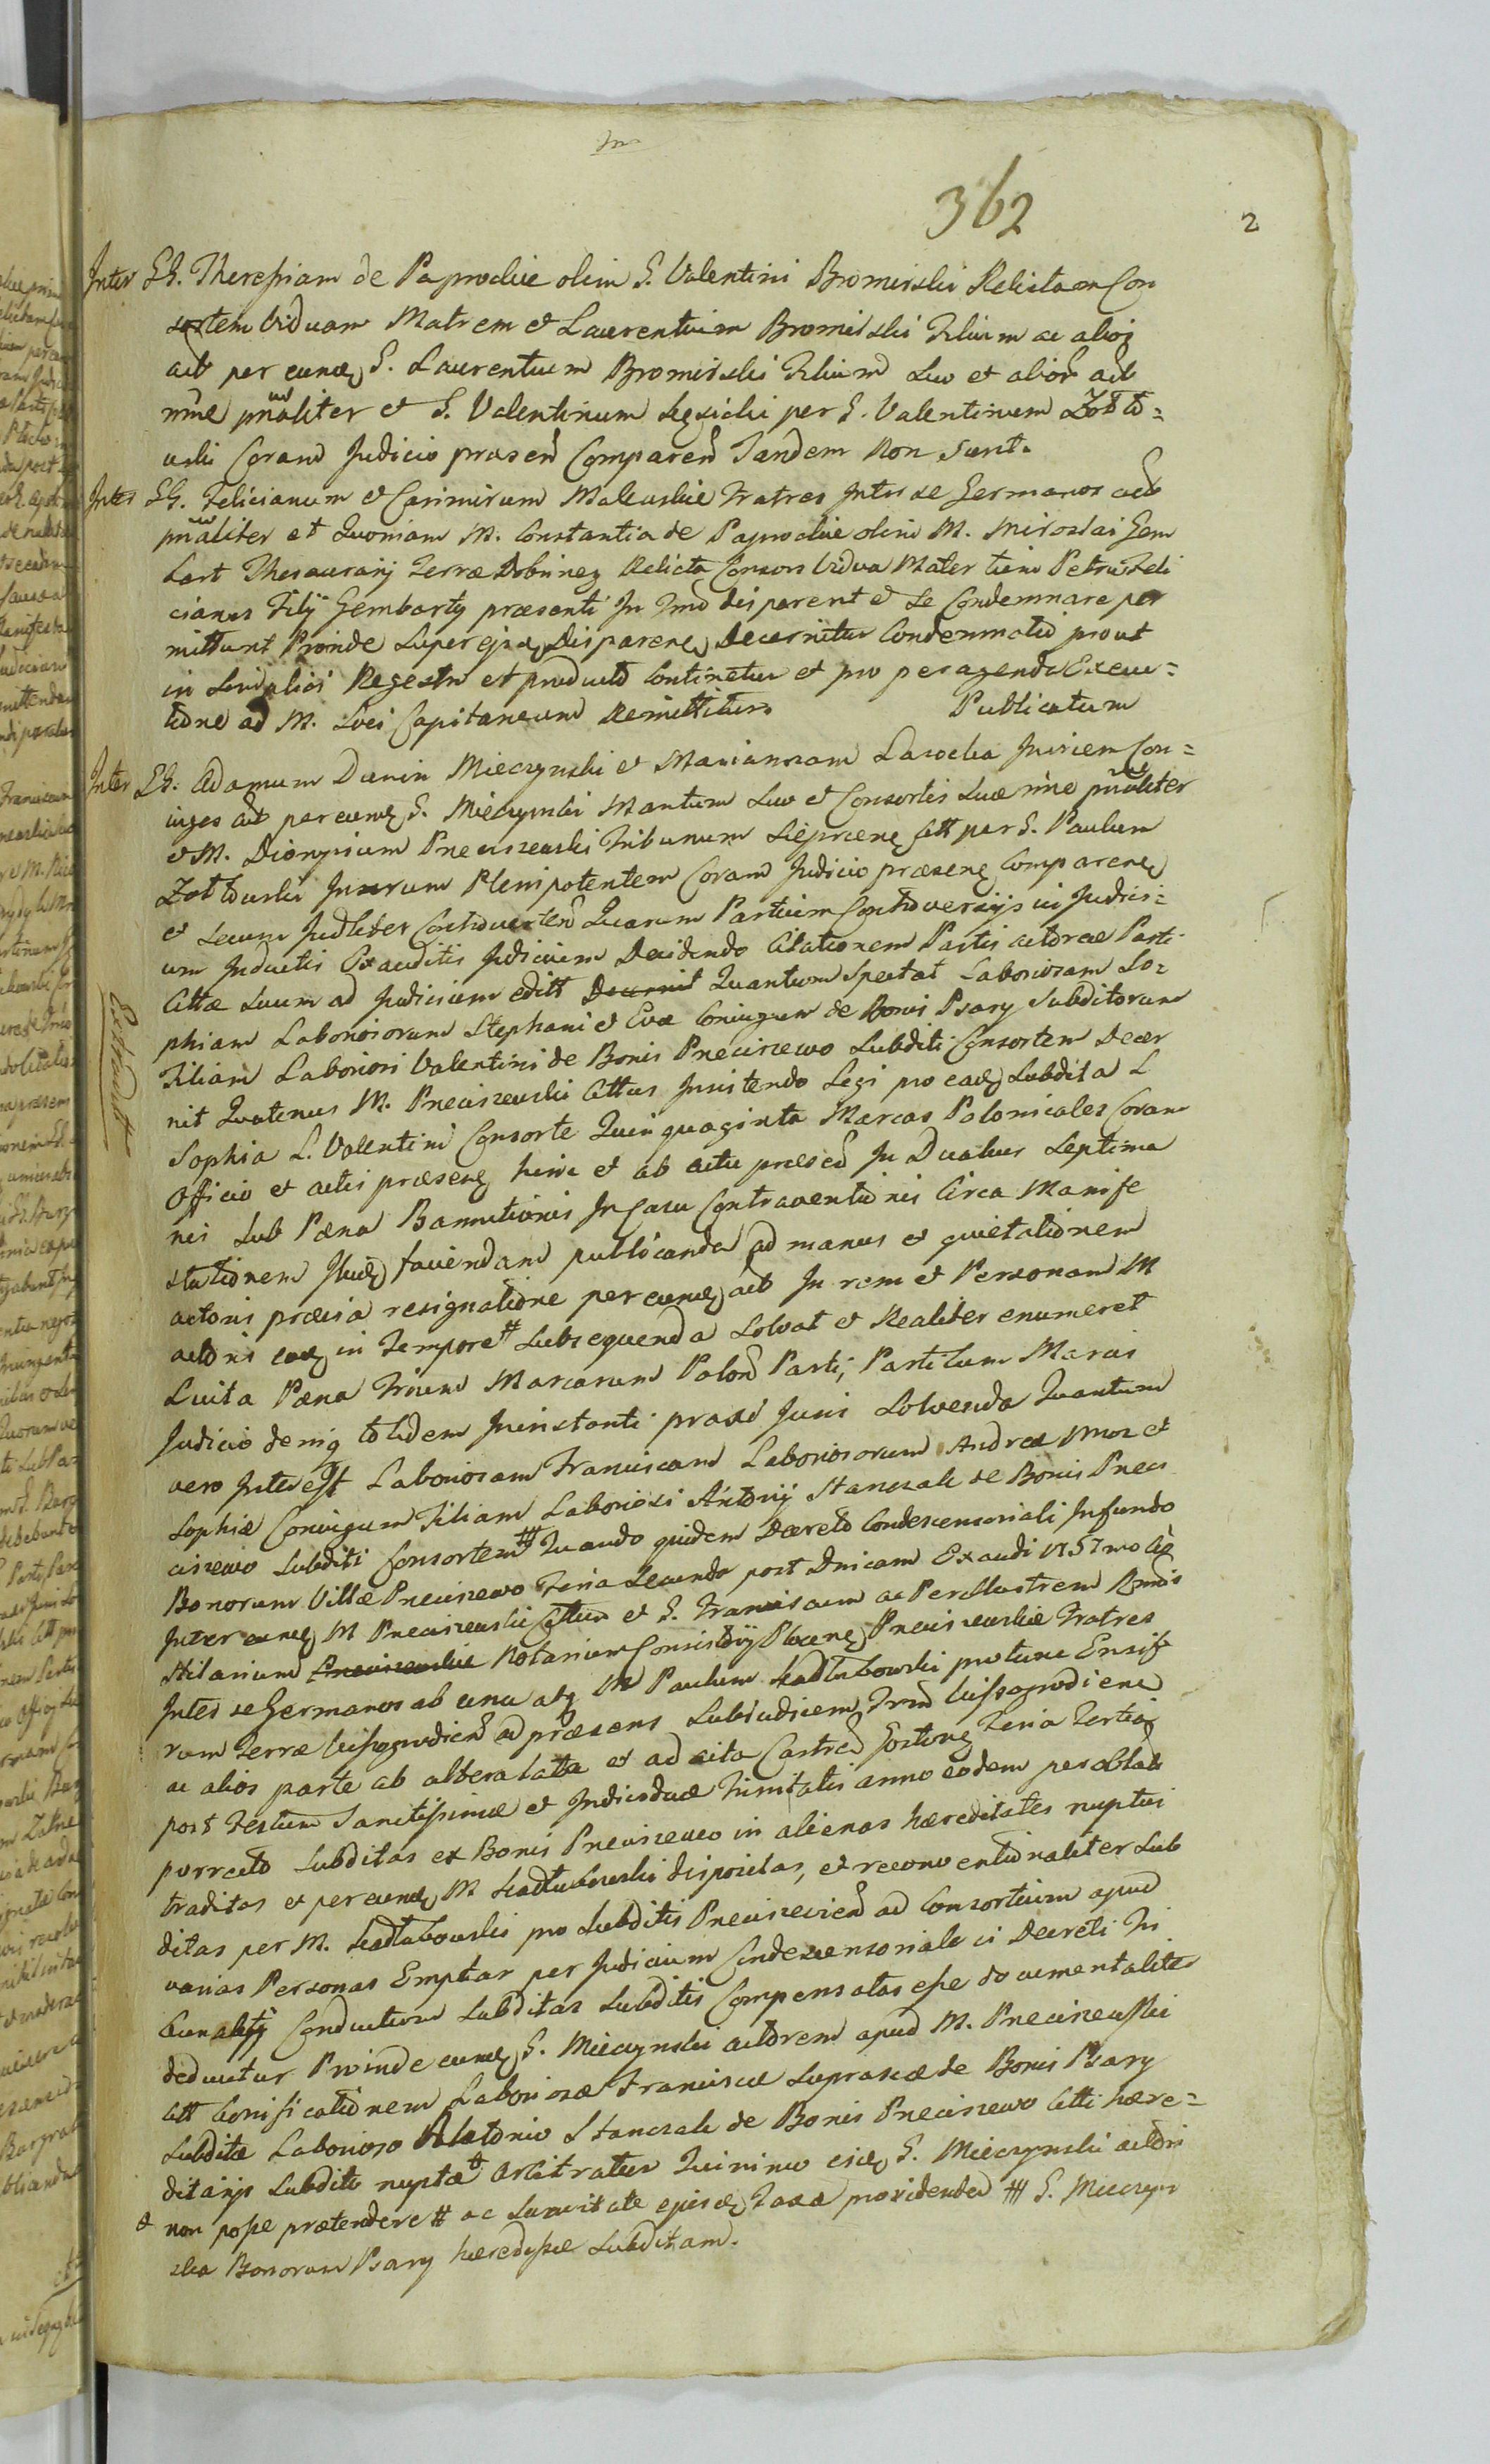 362
2
Inter GG. Theressiam de Paprockie olim G. Valentini Bromirski Relictam Con
sortem Viduam Matrem et Laurentium Bromirski Filium ac alios
act per eund G. Laurentium Bromirski Filium suo et alior act
nne pnaliter et G. Valentinum per G. Valentinum Zołto=
wski Coram Judicio præsen Comparen Tandem Non Sunt.
Inter GG. Felicianum et Casimirum Malewskie Fratres Inter se Germanos act
pnaliter et Quoniam M. Constantia de Paprockie olim M. Miroslai Gem
bart Thesaurarij Terræ Dobrinen Relicta Consors Vidua Mater tum Petrus Feli
cianus Filij Gembarty præsenti In Tmo disparent et se Condemnare per
mittunt Proinde super ejsd Disparen Decernitur Condemnatio prout
in Regestro et producto Continetur et pro peragenda Execu=
tione ad M. Loci Capitaneum Remittitur. Publicatum
Inter GG. Adamum Dunin Mieczynski et Mariannam Lasocka Invicem Con=
iuges act per eund G. Mieczynski Maritum suo et Consortis suæ nne pnaliter
et M. Dionysium Preciszewski Tribunum Sieprcen Citt per G. Paulum
Zołtowski Iurium Plenipotentem Coram Judicio præsen Comparen
et secum Judliter Controverten Quarum Partium Controversijs in Judici=
um Inductis Exauditis Judicium Decidendo Citationem Partis actoreæ Parti
Cittæ suum ad Judicium edit Decernit Quantum Spectat Laboriosam So=
phiam Laboriosorum Stephani et Evæ Coniugum de Bonis Psary Subditorum
Filiam Laboriosi Valentini de Bonis Preciszewo Subditi Consortem Decer
nit Quatenus M. Preciszewski Cittus Insistendo Legi pro ead Subdita L
Sophia L. Valentini Consorte Quinquaginta Marcas Polonicales Coram
Officio et actis præsen hinc et ab actu præsen In Duabus Septima
nis sub Pæna Bannitionis In Casu Contraventionis Circa Manife
stationem faciendam publicanda ad manus et quietationem
actoris præcisa resignatione per eund act In rem et Personam M
actoris ead in Tempore # Subsequenda Solvat et Realiter enumeret
Luita Pæna Trium Marcarum Polon Parti, Partilum Marcis
Judicio deniq totidem Ininstanti praxi Juris Solvenda Quantum
vero Interest Laboriosam Franciscam Laboriosorum Andreæ Mos et
Sophiæ Coniugum Filiam Laboriosi Antonij Stanczak de Bonis Preci
ciszewo Subditi Consortem ## Quando quidem Decreto Condescensoriali Infundo
Bonorum Villæ Preciszewo Feria Secunda post Dnicam Exaudi 1757mo
Inter eund M Preciszewski Cittum et G. Franciscum ac Perillustrem Rndis
Hilarium Preciszewskie Notarium Consistorij Plocen Preciszewskie Fratres
Inter se Germanos ab una atq M Paulum Kadłubowski protunc Ensif
rum Terræ Vissogrodien ad præsens Subiudicem Trrm Vissogrodien
ac alios parte ab altera latta et ad acta Castren Gostinen Feria Tertia
post Festum Sanctissimæ et Individuæ Trinitatis anno eodem per oblatam
porrecto Subditas ex Bonis Preciszewo in alienas hæreditates nuptui
traditas et per eund M Kadłubowski dispositas, et reconventionaliter Sub
ditas per M. Kadłubowski pro Subditis Preciszevien ad Consortium apud
varias Personas Emptas per Judicium Condescensoriale vi Decreti Tri
bunalij Conductum Subditas Subditis Compensatas esse documentaliter
deducitur Proinde eund G. Mieczynski actorem apud M. Preciszewski
Citt bonificationem Laboriosæ Franciscæ suprascæ de Bonis Psary
Subditæ Laborioso Antonio Stanczak de Bonis Preciszewo Citti hære=
ditarijs Subdito nuptæ # Arbitratur Quinimo eid G. Mieczynski actori
# non posse prætendere # ac Suavitate ejusd Taxæ providenda ### G. Mieczyn
ska Bonorum Psary hæredissæ Subditam.
Extradit